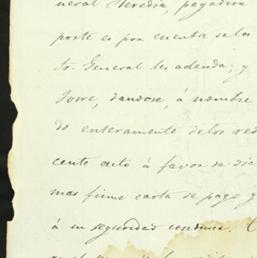 neral Heredia, pagadera
porte es por cuenta de los
Sr. General les adeuda; y
Torre, dandose, á nombre
do enteramente de los red
cento acto á favor de dic
mas firme carta de pago y
á su seguridad conduce.